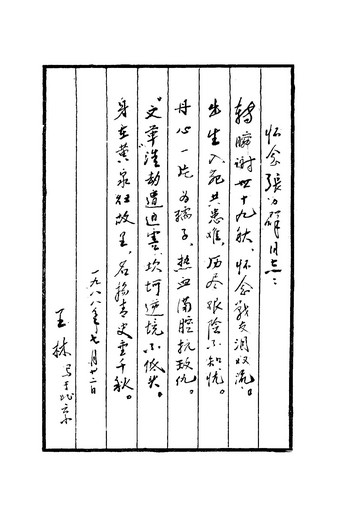 怀念张力群同志：
转瞬谢世十九秋，怀念战友泪双流。
出生入死共患难，历尽艰险不知忧。
丹心一片为孺子，热血满腔抗敌仇。
“文革”浩劫遭迫害，坎坷逆境不低头。
身在黄泉往故里，名扬青史垂千秋。
一九八八年七月廿二日
王林写于北京